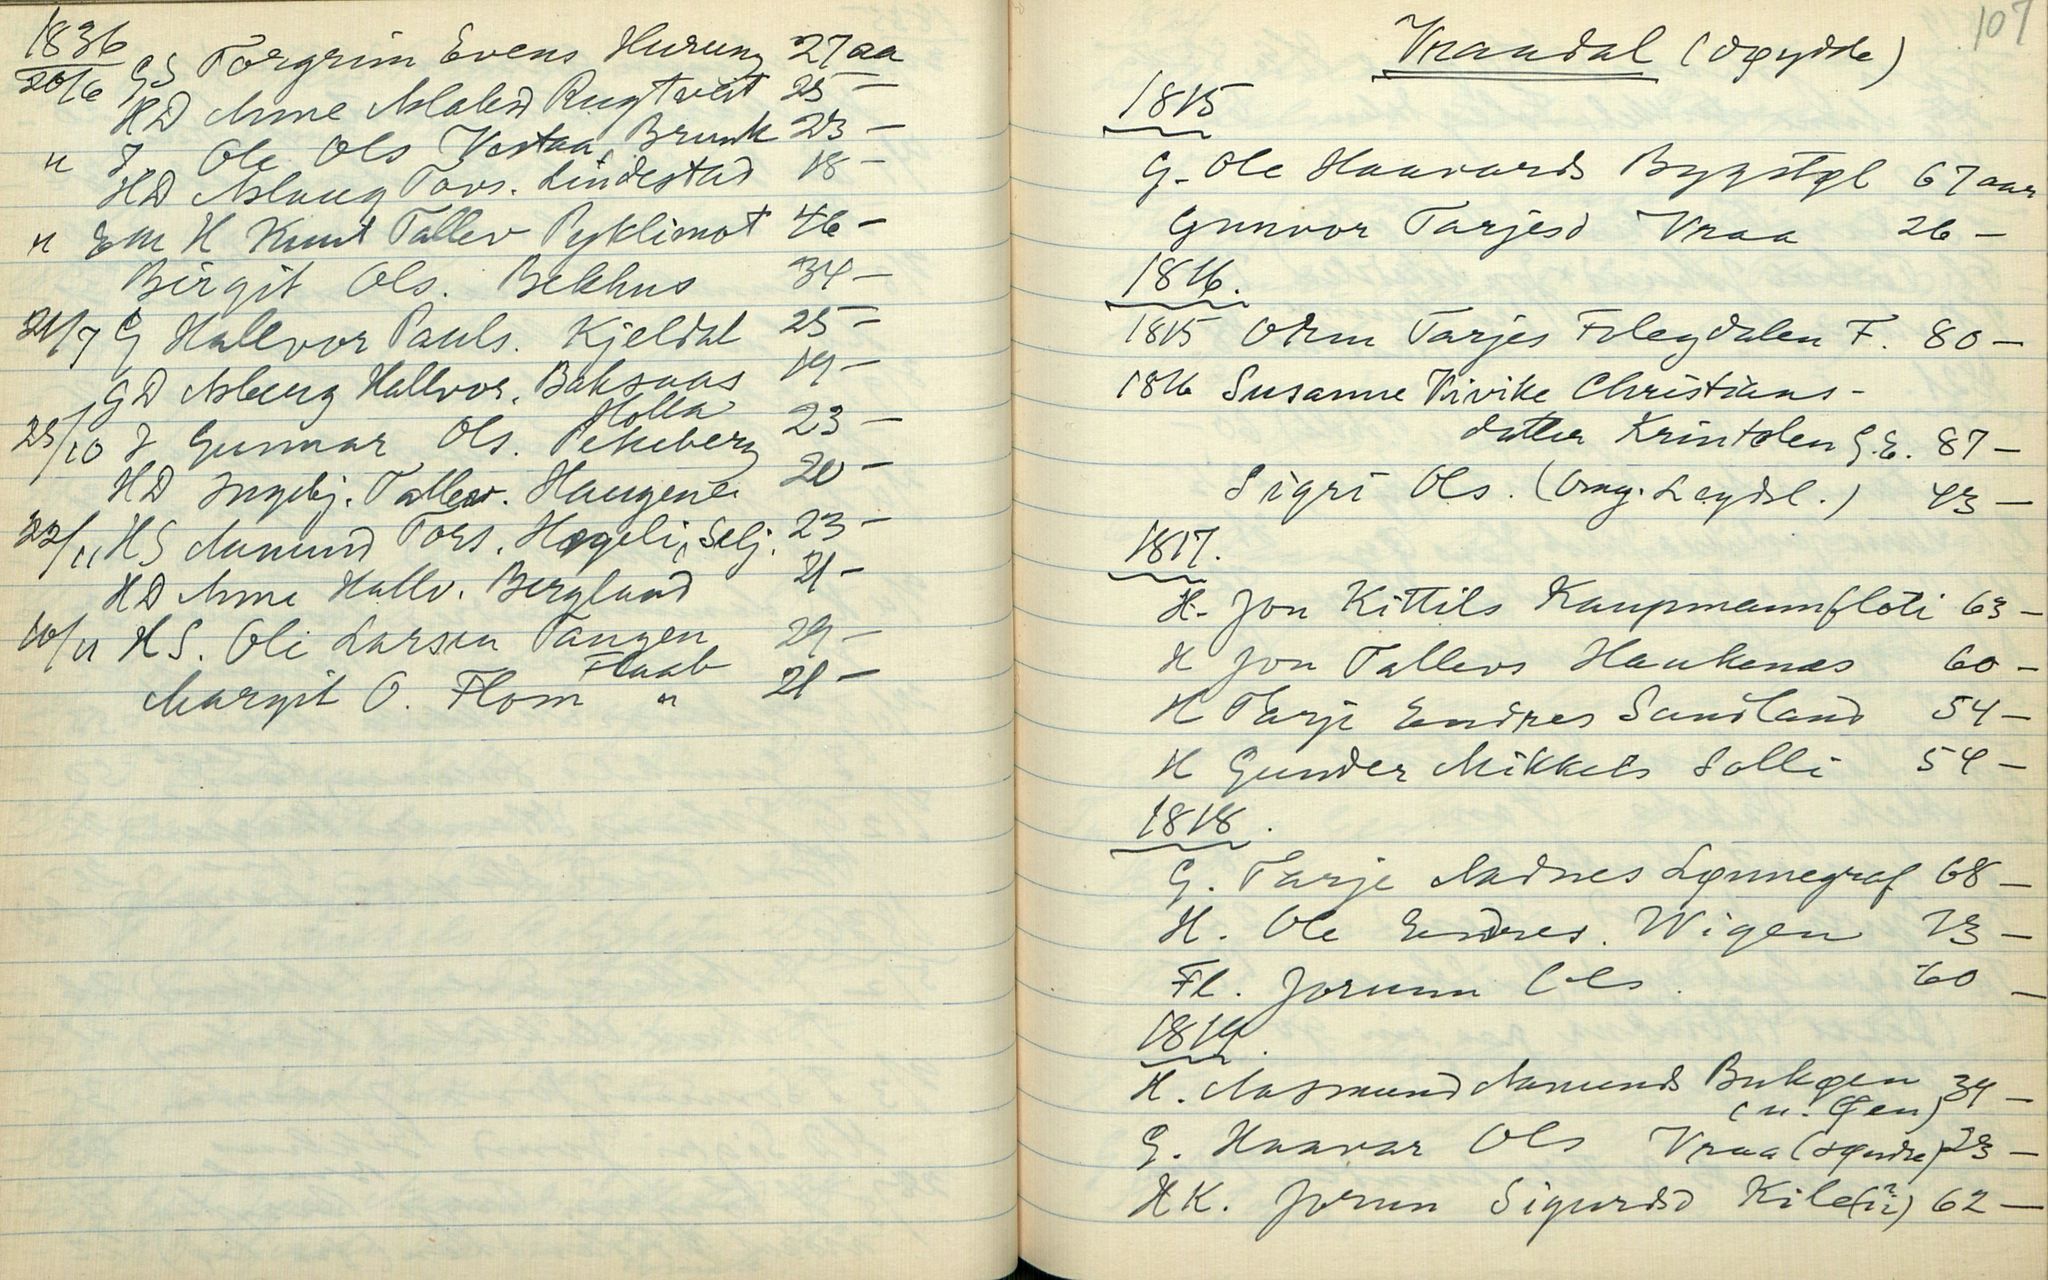 1836
20/6 GS Torgrim Evens Hurung 27 aa
HD Anne Aslaksd Rugtveit 25 –
" J Ole Ols Vestaa, Brunk 23 –
HD Aslaug Tovs. Lindestad 18 –
" Em H Knut Tallev Pyklimot 46 –
Birgit Ols. Bekhus 34 –
21/7 G Hallvor Pauls. Kjeldal 25 –
GD Asberg Hallvor. Baksaas 19 –
Holla
23/10 J Gunnar Ols. 23 –
HD Ingebj. Tallev. Haugene 20 –
22/11 HS Aamund Tors. Hægeli, Selj. 23 –
HD Anne Hallv. Bergland 21 –
10/11 HS. Ole Larsen Tangen 29 –
Flaab
Margit O. Flom " 21 –
107
Vraadal (Døydde)
1815
G. Ole Haavards Bygstøl 67 aar
Gunvor Tarjesd Vraa 26 –
1816.
1815 Orm Tarjes Flegdalen F. 80 –
1816 Susanne Vivike Christians-
datter Krintolen G.E. 87 –
Sigri Ols. (Omg. Lægdsl.) 43 –
1817.
H. Jon Kittils Kaupmannfloti 63 –
H Jon Tallevs Haukenæs 60 –
H Tarje Endres Sandland 54 –
H Gunder Mikkels Solli 54 –
1818.
G. Tarje Aadnes Lønnegraf 68 –
H. Ole Endres. Wigen 73 –
Fl. Jorunn Ols. 60 –
1819.
H. Aasmund Aamunds Bukøen 34 –
(n. Øen)
G. Haavar Ols Vraa (søndre) 23 –
HK. Jorun Sigurdsd Kile 62 –